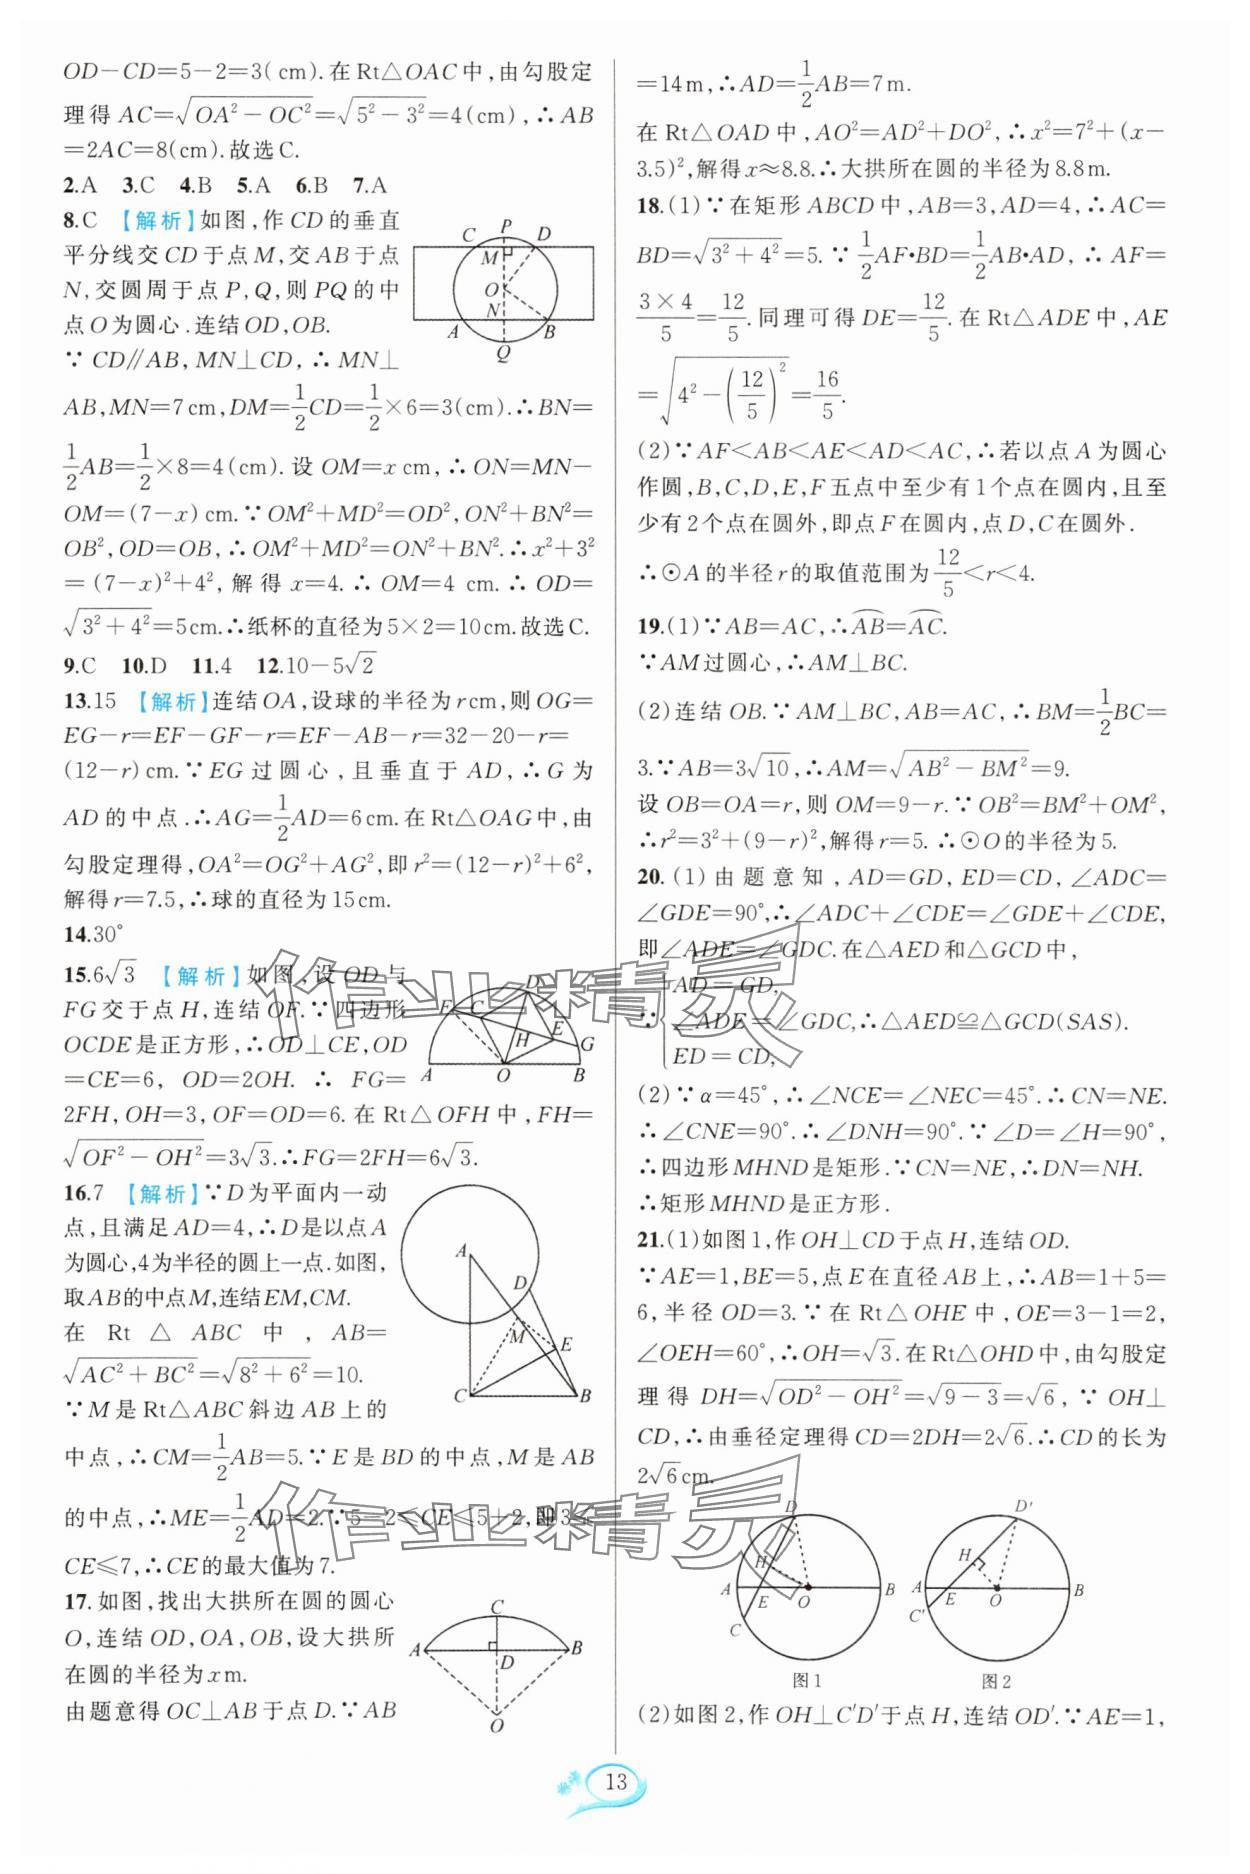 OD－CD=5－2=3(cm).在Rt△OAC中,由勾股定
理得 AC=√(OA²－OC²)=√(5²－3²)=4(cm),∴AB
=2AC=8(cm).故选C.
2.A 3.C 4.B 5.A 6.B 7.A
8.C 【解析】如图,作CD的垂直
平分线交CD于点M,交AB于点
N,交圆周于点P,Q,则PQ的中
点O为圆心.连结OD,OB.
∵CD∥AB,MN⊥CD,∴MN⊥
C P D M O N A B Q
AB,MN=7cm,DM=1/2CD=1/2×6=3(cm).∴BN=
1/2AB=1/2×8=4(cm).设OM=x cm,∴ON=MN－
OM=(7－x)cm.∵OM²+MD²=OD²,ON²+BN²=
OB²,OD=OB,∴OM²+MD²=ON²+BN².∴x²+3²
=(7－x)²+4²,解得x=4.∴OM=4 cm.∴OD=
√(3²+4²)=5cm.∴纸杯的直径为5×2=10cm.故选C.
9.C 10.D 11.4 12.10－5√2
13.15 【解析】连结OA,设球的半径为r cm,则OG=
EG－r=EF－GF－r=EF－AB－r=32－20－r=
(12－r)cm.∵EG过圆心,且垂直于AD,∴G为
AD的中点.∴AG=1/2AD=6cm.在Rt△OAG中,由
勾股定理得,OA²=OG²+AG²,即r²=(12－r)²+6²,
解得r=7.5,∴球的直径为15cm.
14.30°
15.6√3 【解析】如图,设OD与
FG交于点H,连结OF.∵四边形
OCDE是正方形,∴OD⊥CE,OD
=CE=6, OD=2OH. ∴ FG=
F C D E H G A O B
2FH,OH=3,OF=OD=6.在Rt△OFH中,FH=
√(OF²－OH²)=3√3.∴FG=2FH=6√3.
16.7 【解析】∵D为平面内一动
点,且满足AD=4,∴D是以点A
为圆心,4为半径的圆上一点.如图,
取AB的中点M,连结EM,CM.
在Rt△ABC中,AB=
√(AC²+BC²)=√(8²+6²)=10.
∵M是Rt△ABC斜边AB上的
A D M E C B
中点,∴CM=1/2AB=5.∵E是BD的中点,M是AB
的中点,∴ME=1/2AD=2.∵5－2≤CE≤5+2,即3≤
CE≤7,∴CE的最大值为7.
17.如图,找出大拱所在圆的圆心
O,连结OD,OA,OB,设大拱所
在圆的半径为x m.
由题意得OC⊥AB于点D.∵AB
C A D B O
=14m,∴AD=1/2AB=7m.
在Rt△OAD中,AO²=AD²+DO²,∴x²=7²+(x－
3.5)²,解得x≈8.8.∴大拱所在圆的半径为8.8m.
18.(1)∵在矩形ABCD中,AB=3,AD=4,∴AC=
BD=√(3²+4²)=5.∵1/2AF•BD=1/2AB•AD,∴AF=
(3×4)/5=12/5.同理可得DE=12/5.在Rt△ADE中,AE
=√(4²－(12/5)²)=16/5.
(2)∵AF<AB<AE<AD<AC,∴若以点A为圆心
作圆,B,C,D,E,F五点中至少有1个点在圆内,且至
少有2个点在圆外,即点F在圆内,点D,C在圆外.
∴⊙A的半径r的取值范围为12/5<r<4.
19.(1)∵AB=AC,∴⌒AB=⌒AC.
∵AM过圆心,∴AM⊥BC.
(2)连结OB.∵AM⊥BC,AB=AC,∴BM=1/2BC=
3.∵AB=3√10,∴AM=√(AB²－BM²)=9.
设OB=OA=r,则OM=9－r.∵OB²=BM²+OM²,
∴r²=3²+(9－r)²,解得r=5.∴⊙O的半径为5.
20.(1)由题意知,AD=GD,ED=CD,∠ADC=
∠GDE=90°,∴∠ADC+∠CDE=∠GDE+∠CDE,
即∠ADE=∠GDC.在△AED和△GCD中,
AD=GD,
∵{∠ADE=∠GDC,∴△AED≌△GCD(SAS).
ED=CD,
(2)∵α=45°,∴∠NCE=∠NEC=45°.∴CN=NE.
∴∠CNE=90°.∴∠DNH=90°.∵∠D=∠H=90°,
∴四边形MHND是矩形.∵CN=NE,∴DN=NH.
∴矩形MHND是正方形.
21.(1)如图1,作OH⊥CD于点H,连结OD.
∵AE=1,BE=5,点E在直径AB上,∴AB=1+5=
6,半径OD=3.∵在Rt△OHE中,OE=3－1=2,
∠OEH=60°,∴OH=√3.在Rt△OHD中,由勾股定
理得DH=√(OD²－OH²)=√(9－3)=√6,∵OH⊥
CD,∴由垂径定理得CD=2DH=2√6.∴CD的长为
2√6cm.
D H A E O B C
D′ H A E O B C′
图1 图2
(2)如图2,作OH⊥C′D′于点H,连结OD′.∵AE=1,
作业精灵
作业精灵
13